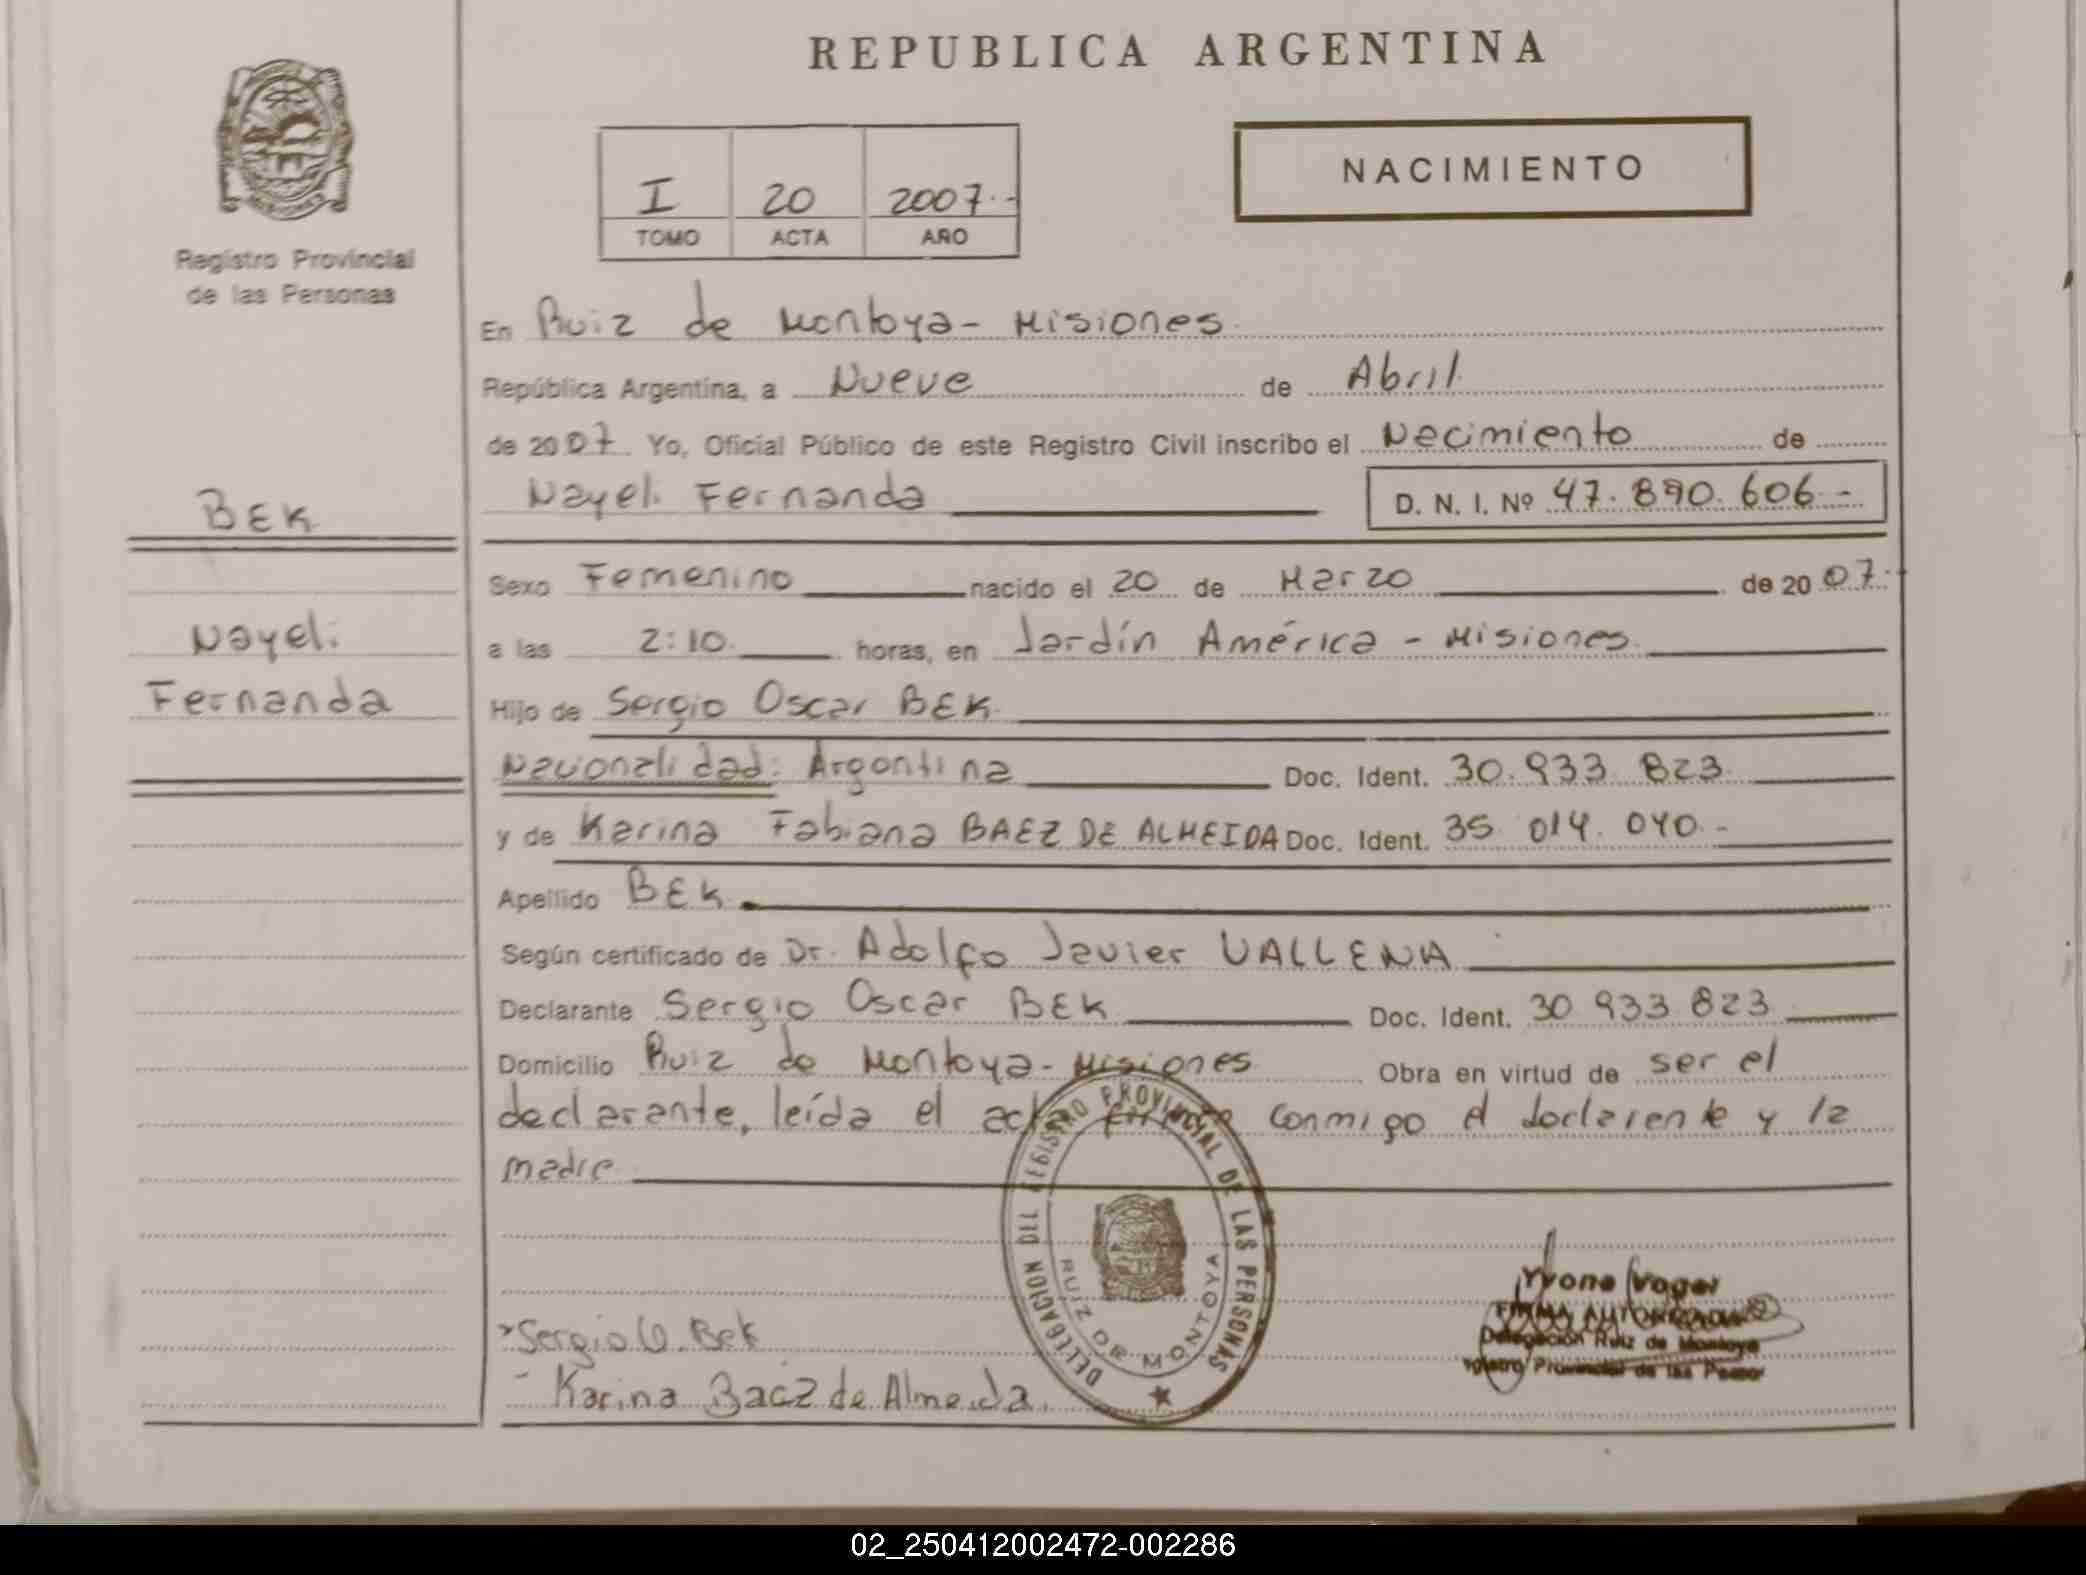 REPUBLICA ARGENTINA
NACIMIENTO
I 20 2007.-
TOMO ACTA AÑO
Registro Provincial
de las Personas
En Ruiz de Montoya - Misiones.
República Argentina, a Nueve de Abril.
de 2007. Yo, Oficial Público de este Registro Civil inscribo el Nacimiento de
Nayeli Fernanda D. N. I. Nº 47.890.606.-
BEK
Sexo Femenino nacido el 20 de Marzo de 2007.
Nayeli
a las 2:10. horas, en Jardín América - Misiones.
Fernanda
Hijo de Sergio Oscar BEK.
Nacionalidad: Argentina Doc. Ident. 30.933.823.
y de Karina Fabiana BAEZ DE ALMEIDA Doc. Ident. 35.014.040.-
Apellido BEK.
Según certificado de Dr. Adolfo Javier VALLENA
Declarante Sergio Oscar BEK Doc. Ident. 30 933 823
Domicilio Ruiz de Montoya - Misiones Obra en virtud de ser el
declarante, leída el acta conmigo el declarante y la
madre
DELEGACION DEL REGISTRO PROVINCIAL DE LAS PERSONAS
RUIZ DE MONTOYA
Yvone
FIRMA AUTORIZADA
Delegación Ruiz de Montoya
Provincial de las
Sergio O. Bek
- Karina Baez de Almeida.
02_250412002472-002286